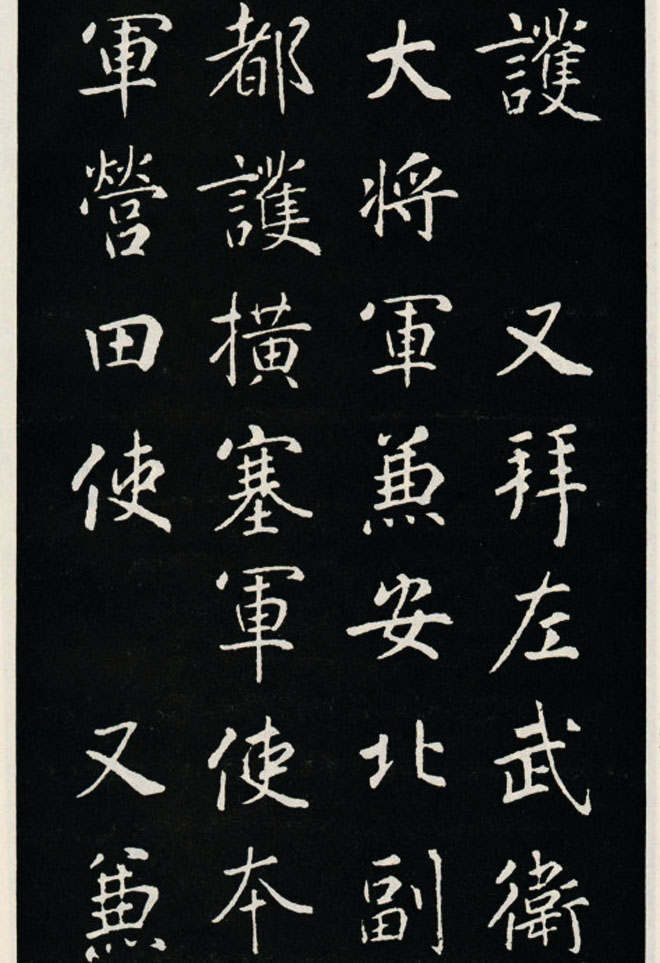 護　又拜左武衛
大将軍兼安北副
都護撗塞軍使本
軍營田使　又兼